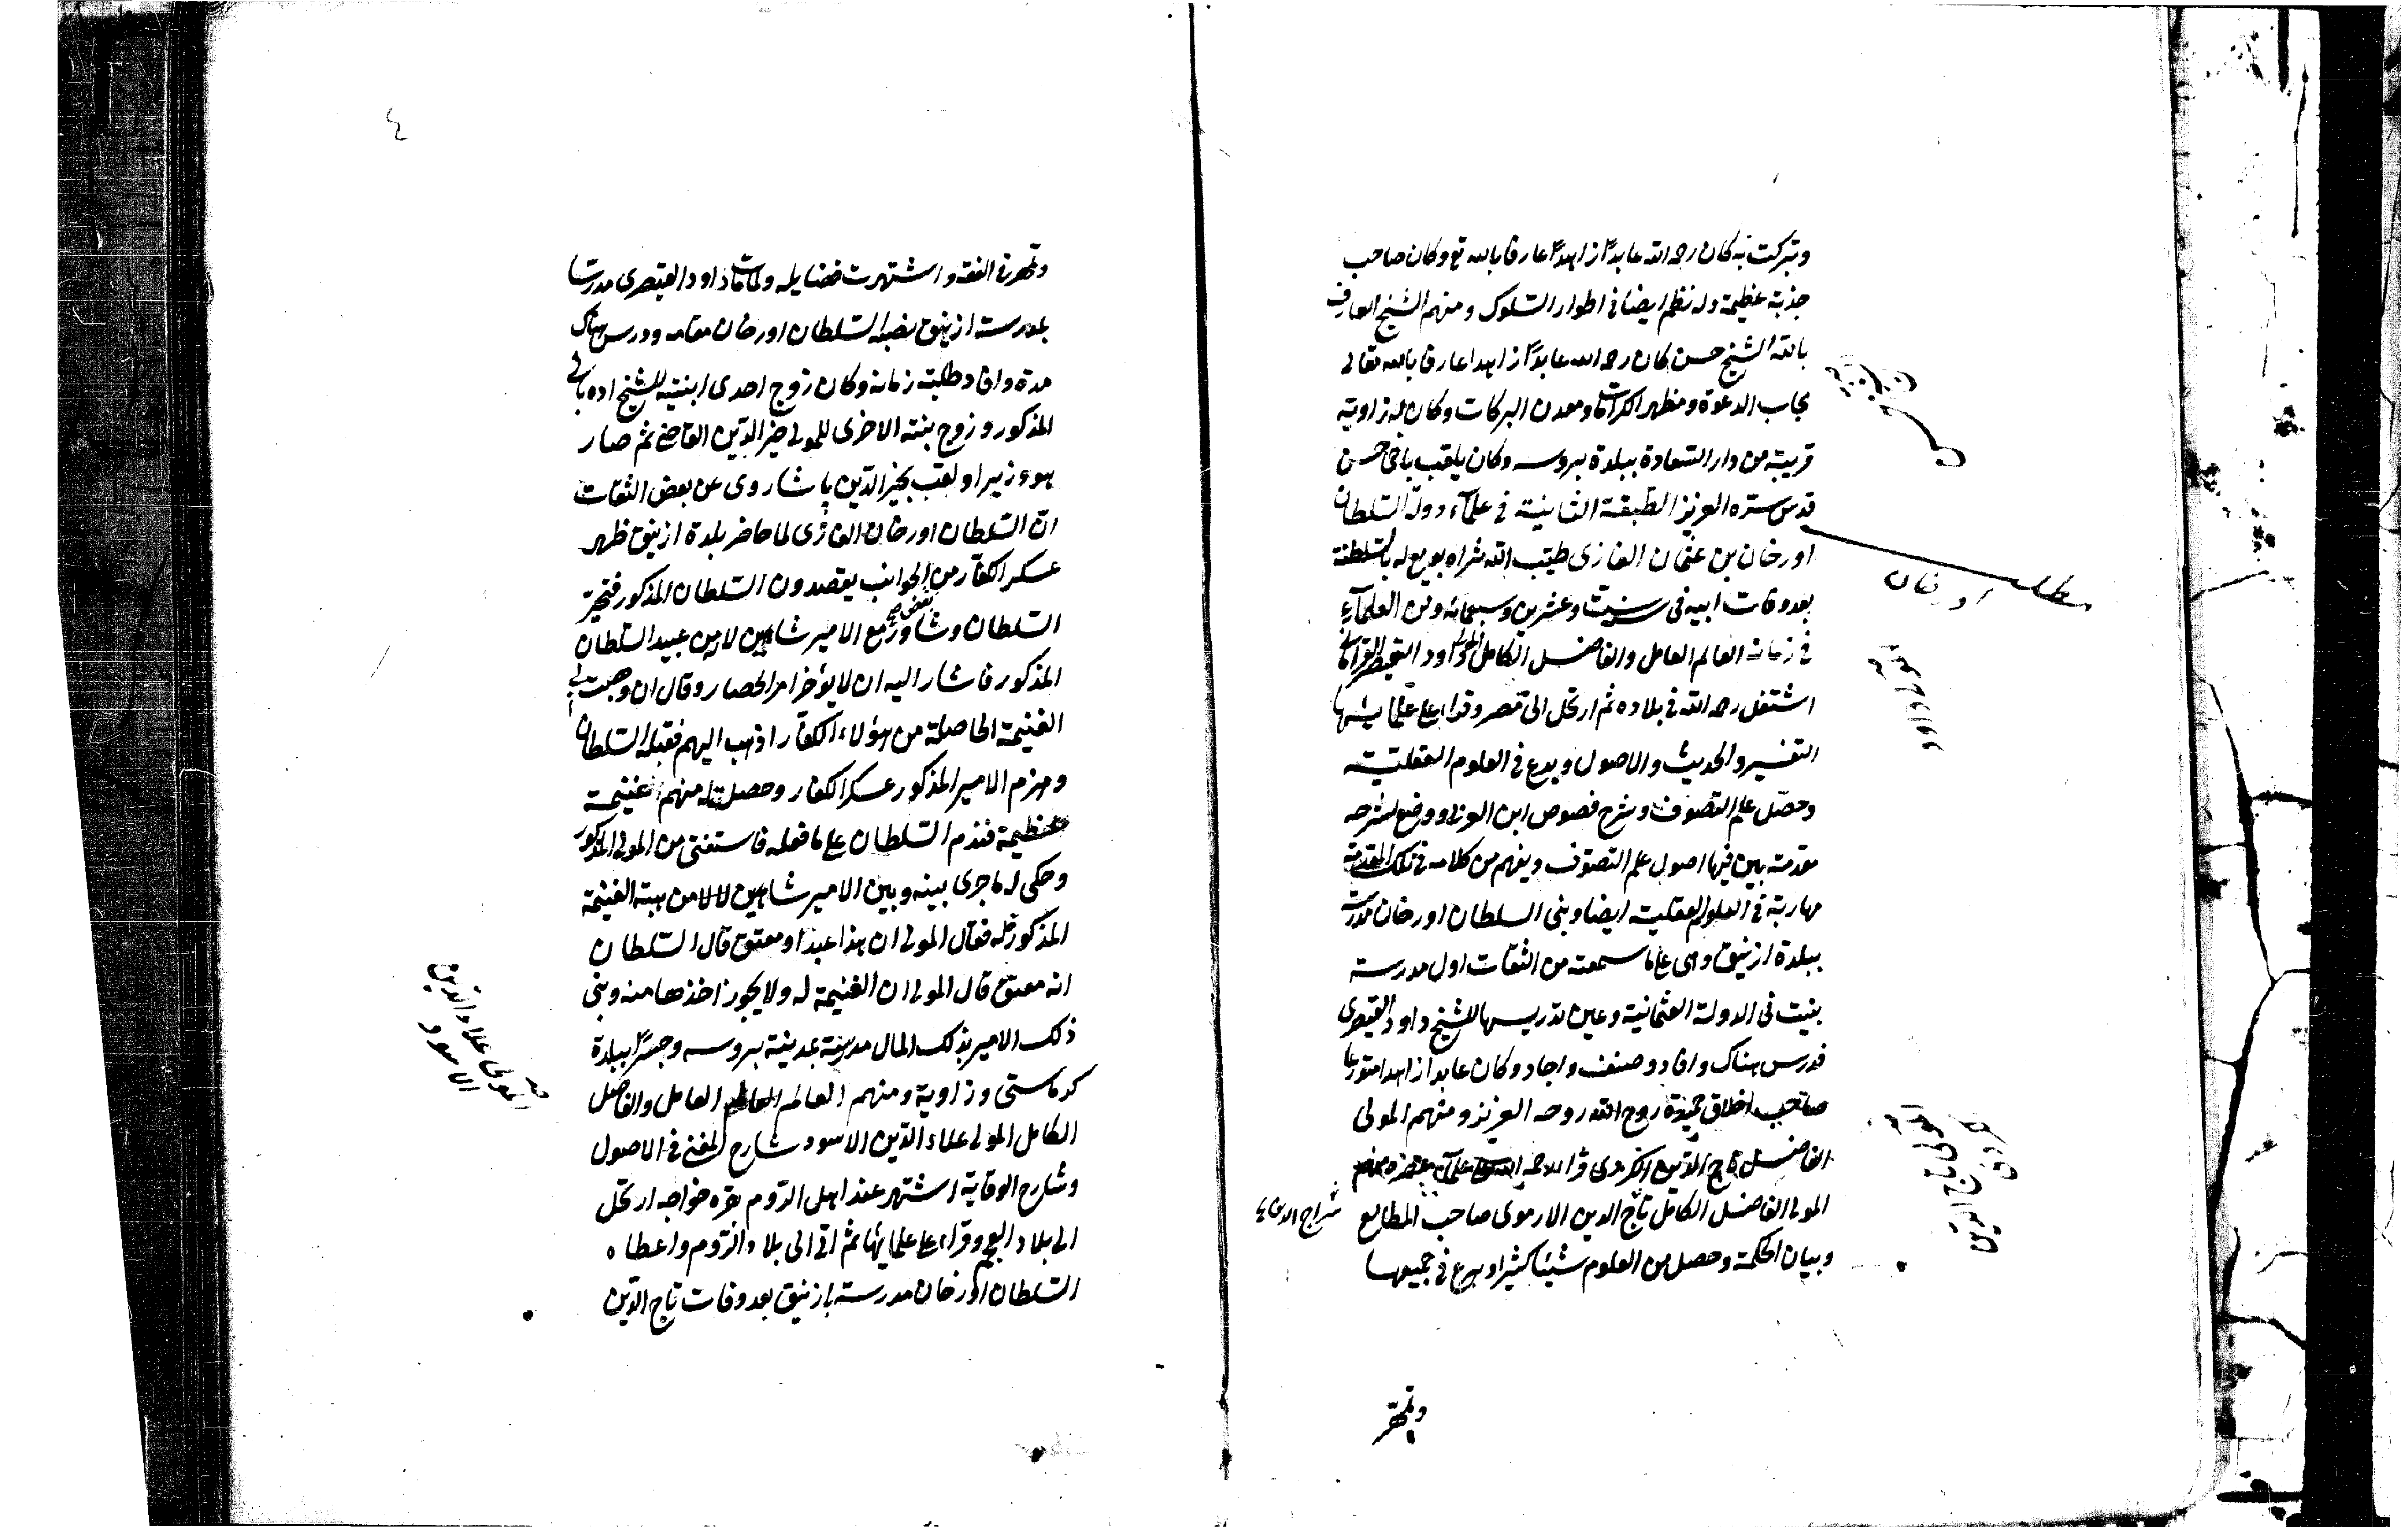 وتبركت به كان رحمه الله عابدا زاهدا عارفا بالله تع وكان صاحب
جذبة عظيمة وله نظم ايضا فى اطوار السلوك ومنهم الشيخ العارف
بالله الشيخ حسن كان رحمه الله عابدا زاهدا عارفا بالله تعالى
مجاب الدعوة ومظهر الكرامات ومعدن البركات وكان له زاوية
قريبة من دار السعادة ببلدة بروسه وكان يلقب باخى حسن
قدس سره العزيز الطبقة الثانية فى علماء دولة السلطان
اورخان بن عثمان الغازى طيب الله ثراه بويع له بالسلطنة
بعد وفات ابيه فى سنة ست وعشرين وسبعمائه ومن العلماء
فى زمانه العالم العامل والفاضل الكامل المولى داود القيصرى القرامانى
اشتغل رحمه الله فى بلاده ثم ارتحل الى مصر وقراء على علمائها
التفسير والحديث والاصول وبرع فى العلوم العقلية
وحصل علم التصوف وشرح فصوص ابن العربى ووضع لشرحه
مقدمة بين فيها اصول علم التصوف ويفهم من كلامه فى تلك المقدمة
مهارته فى العلوم العقلية ايضا وبنى السلطان اورخان مدرسة
ببلدة ازنيق وهى على ما سمعته من الثقات اول مدرسة
بنيت فى الدولة العثمانية وعين تدريسها للشيخ داود القيصرى
فدرس هناك وافاد وصنف واجاد وكان عابدا زاهدا متورعا
صاحب اخلاق حميدة روح الله روحه العزيز ومنهم المولى
الفاضل تاج الدين الكردى قراء رحمه الله على علماء عصره منهم
المولى الفاضل الكامل تاج الدين الارموى صاحب المطالع
سراج الدين
وبيان الحكمة وحصل من العلوم شيئا كثيرا وبرع فى جميعها
وتمهر
مطلب اورخان
٤
وتمهر فى الفقه واشتهرت فضايله ولما مات داود القيصرى مدرسا
بمدرسة ازنيق نصبه السلطان اورخان مقامه ودرس هناك
مدة وافاد طلبة زمانه وكان زوج احدى ابنتيه للشيخ اده بالى
المذكور وزوج بنته الاخرى للمولى خير الدين القاضى ثم صار
هو وزيرا ولقب بخير الدين پاشا روى عن بعض الثقات
ان السلطان اورخان الغازى لما حاصر بلدة ازنيق ظهر
عسكر الكفار من بعض الجوانب يقصدون السلطان المذكور فتحير
السلطان وشاور مع الامير شاهين لالا من عبيد السلطان
المذكور فاشار اليه ان لا يؤخر امر الحصار وقال ان وهبت لى
الغنيمة الحاصلة من هؤلاء الكفار اذهب اليهم فقبله السلطان
وهزم الامير المذكور عسكر الكفار وحصلت له منهم غنيمة
عظيمة فندم السلطان على ما فعله فاستفتى من المولى المذكور
وحكى له ما جرى بينه وبين الامير شاهين لالا من هبة الغنيمة
المذكورة له فقال المولى ان هذا عبد او معتوق قال السلطان
انه معتوق قال المولى ان الغنيمة له ولا يجوز اخذها منه وبنى
ذلك الامير بذلك المال مدرسة بمدينة بروسه وجسرا ببلدة
كرماستى وزاوية ومنهم العالم العامل والفاضل
الكامل المولى علاء الدين الاسود شارح المغنى فى الاصول
وشارح الوقاية اشتهر عند اهل الروم بقره خواجه ارتحل
الى بلاد العجم وقراء على علمائها ثم اتى الى بلاد الروم واعطاه
السلطان اورخان مدرسة بازنيق بعد وفات تاج الدين
المولى علاء الدين
الاسود